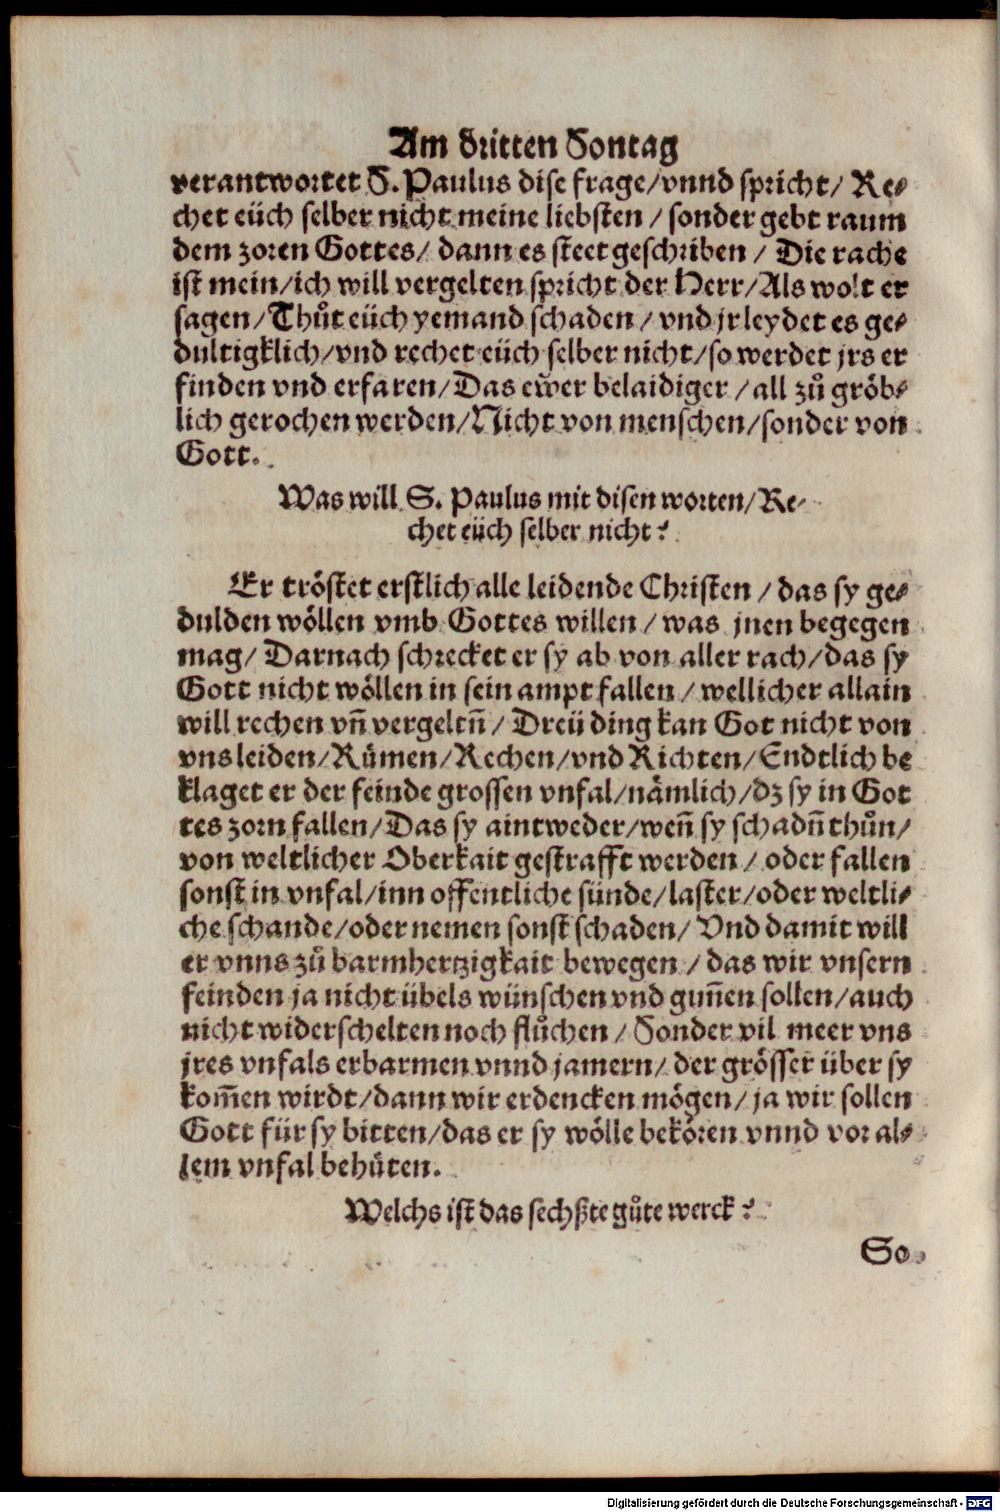 Am dritten Sontag
verantwortet S. Paulus dise frage/vnnd spricht/ Re⸗
chet eüch selber nicht meine liebsten / sonder gebt raum
dem zoren Gottes/ dann es steet geschriben / Die rache
ist mein/ich will vergelten spricht der Herr/Als wolt er
sagen/Thůt eüch yemand schaden / vnd jr leydet es ge⸗
dultigklich/vnd rechet eüch selber nicht/so werdet jrs er
finden vnd erfaren/Das ewer belaidiger / all zů gröb⸗
lich gerochen werden/Nicht von menschen/sonder von
Gott.
Was will S. Paulus mit disen worten/Re⸗
chet eüch selber nicht?
Er tröstet erstlich alle leidende Christen / das sy ge⸗
dulden wöllen vmb Gottes willen / was jnen begegen
mag/ Darnach schrecket er sy ab von aller rach/das sy
Gott nicht wöllen in sein ampt fallen / wellicher allain
will rechen vn̄ vergeltn̄ / Dreü ding kan Got nicht von
vns leiden/Rümen/Rechen/vnd Richten/Endtlich be
klaget er der feinde grossen vnfal/nämlich/dz sy in Got
tes zorn fallen/Das sy aintweder/wen̄ sy schadn̄ thůn/
von weltlicher Oberkait gestrafft werden / oder fallen
sonst in vnfal/inn offentliche sünde/laster/oder weltli⸗
che schande/oder nemen sonst schaden/ Vnd damit will
er vnns zů barmhertzigkait bewegen / das wir vnsern
feinden ja nicht übels wünschen vnd gun̄en sollen/auch
nicht widerschelten noch flůchen / Sonder vil meer vns
jres vnfals erbarmen vnnd jamern/ der grösser über sy
kom̄en wirdt/dann wir erdencken mögen/ ja wir sollen
Gott für sy bitten/das er sy wölle bekören vnnd vor al⸗
lem vnfal behüten.
Welchs ist das sechßte gůte werck?
So
Digitalisierung gefördert durch die Deutsche Forschungsgemeinschaft - DFG